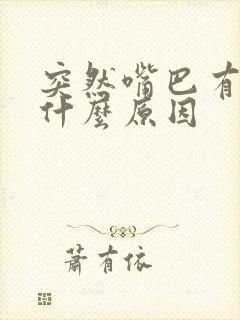 突然嘴巴有
什麼原因
蕭有依